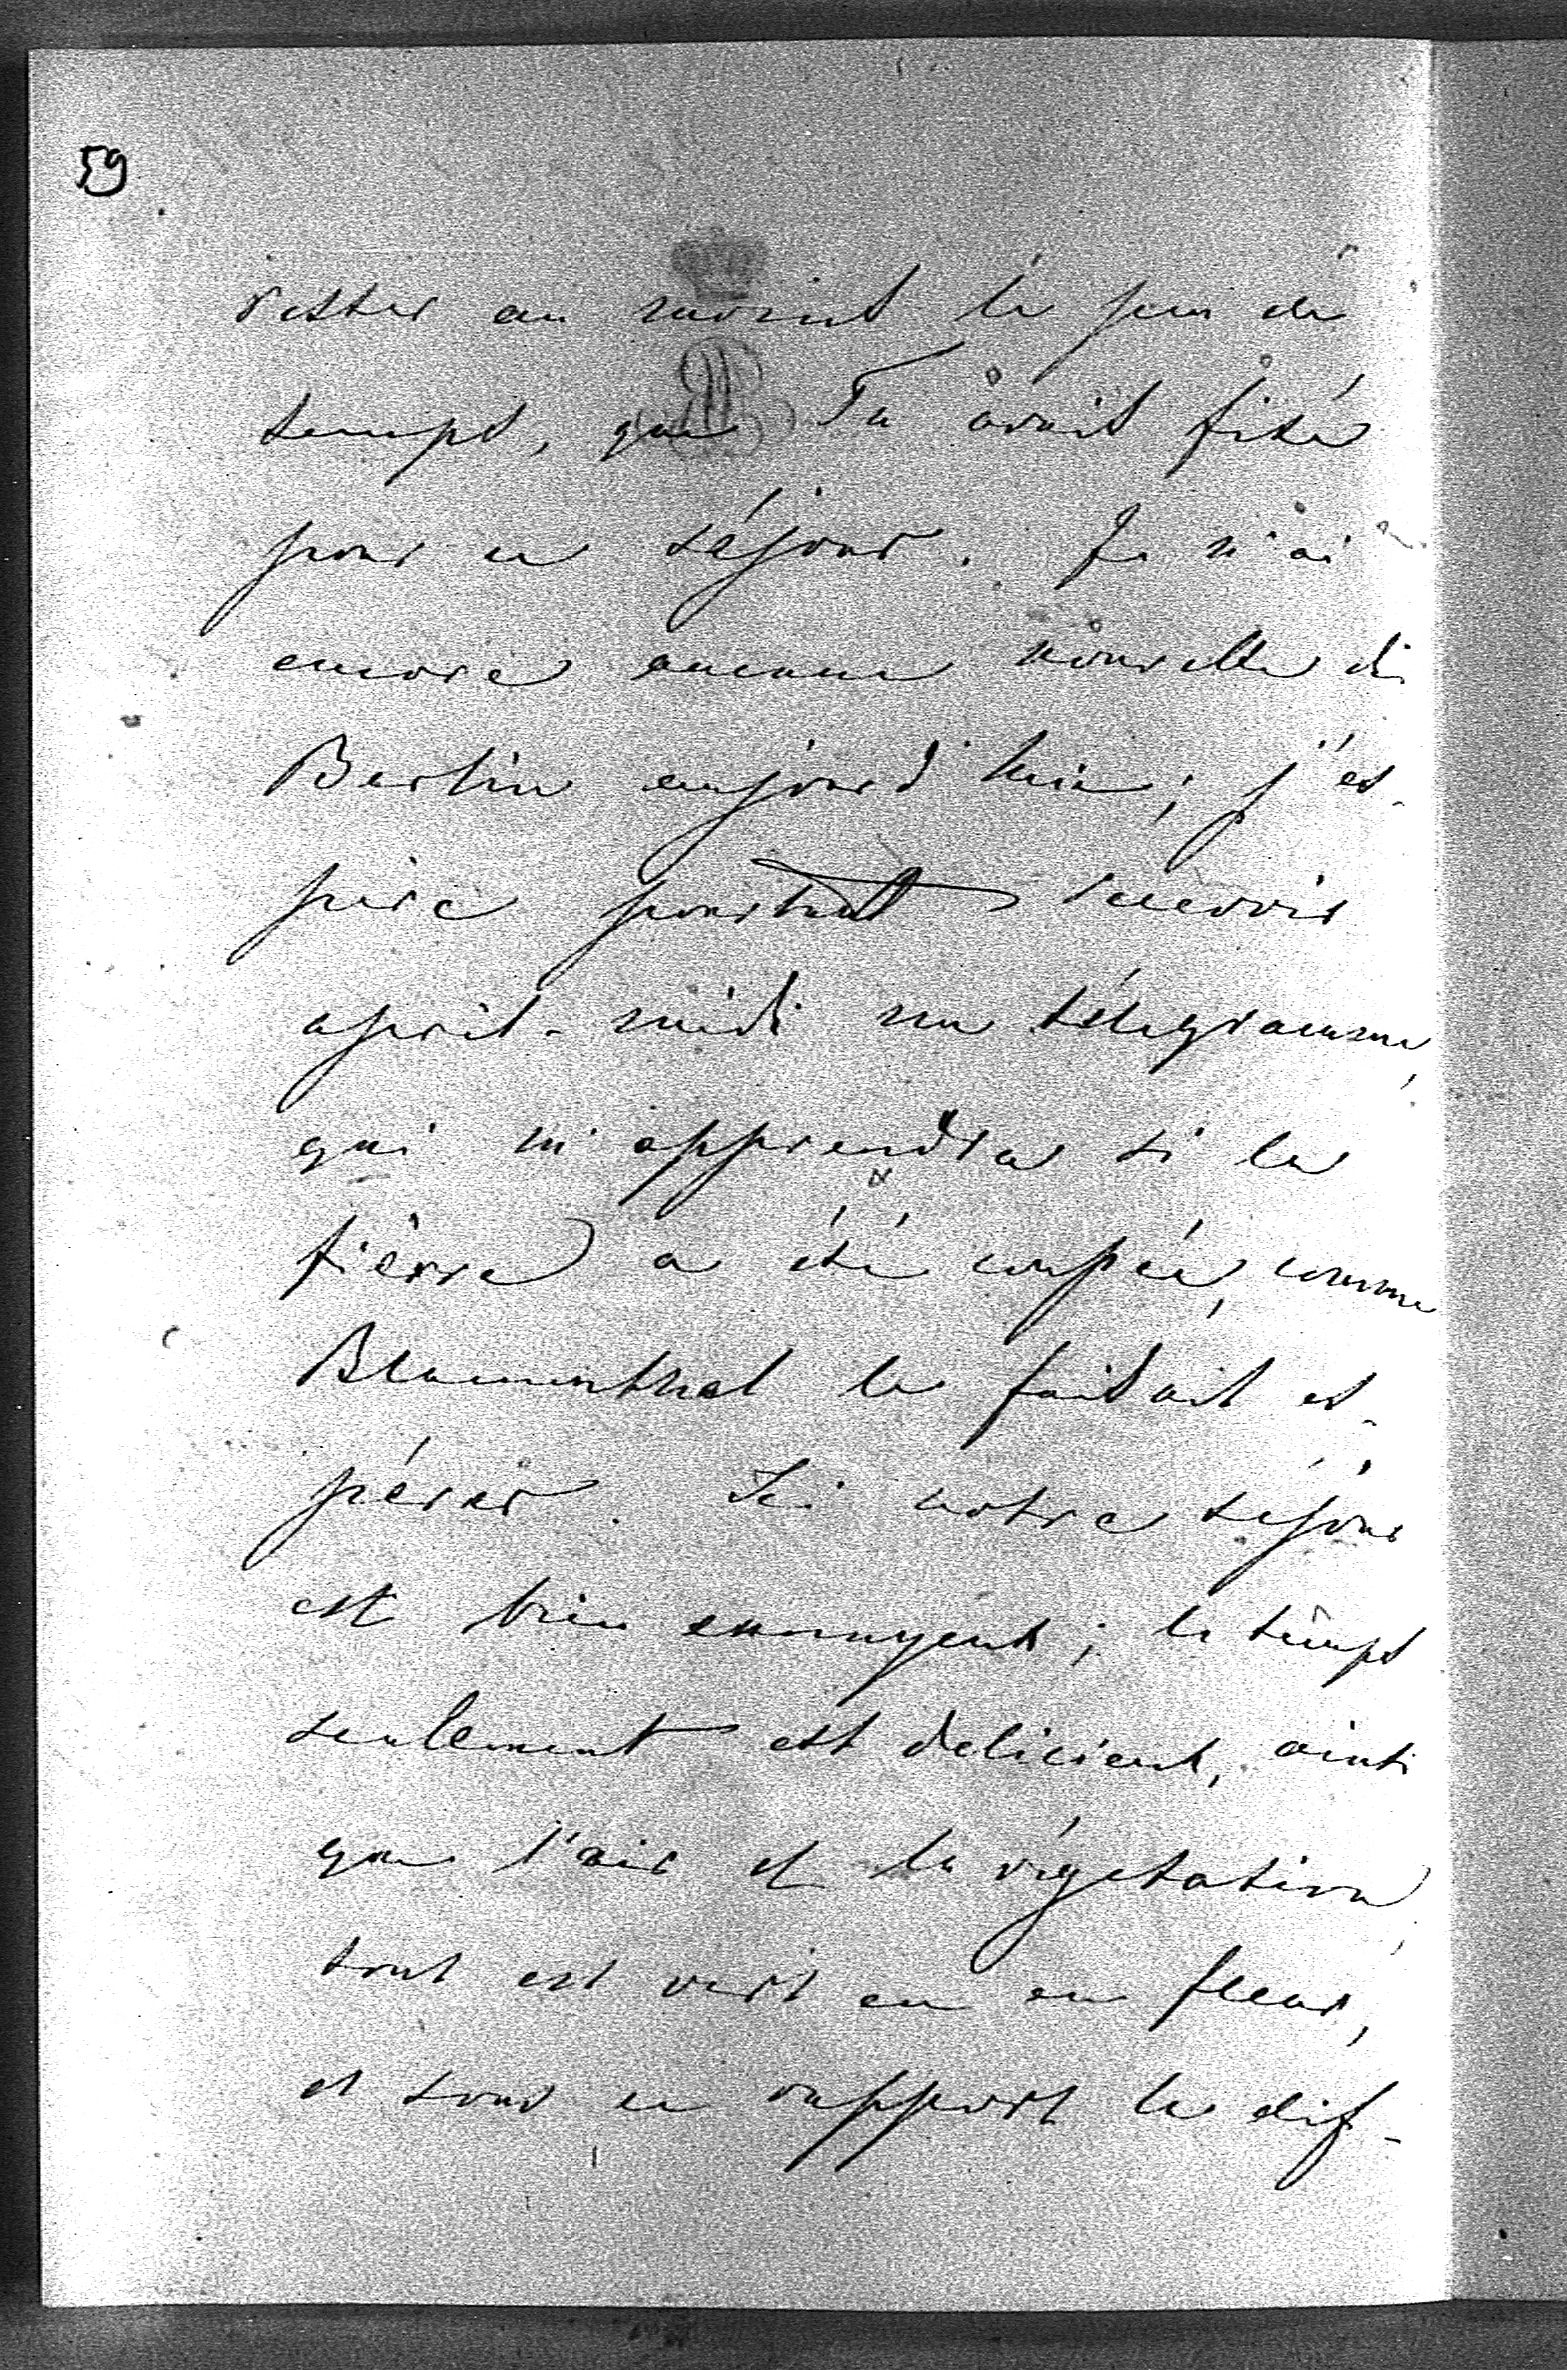 59
rester au moins le peu de
temps, que Tu avais fixé
pour ce séjour. Je n'ai
encore aucune nouvelle de
Berlin aujourd'hui; j'es-
père pourtant recevoir
après-midi un télégramme,
qui m'apprendra si la
fièvre a été coupée, comme
Blumenthal le faisait es-
pérer. Ici notre séjour
est bien ennuyeux; le temps
seulement est delicieux, ainsi
que l'air et la végétation,
tout est vert en en fleur,
et sous ce rapport la dif-